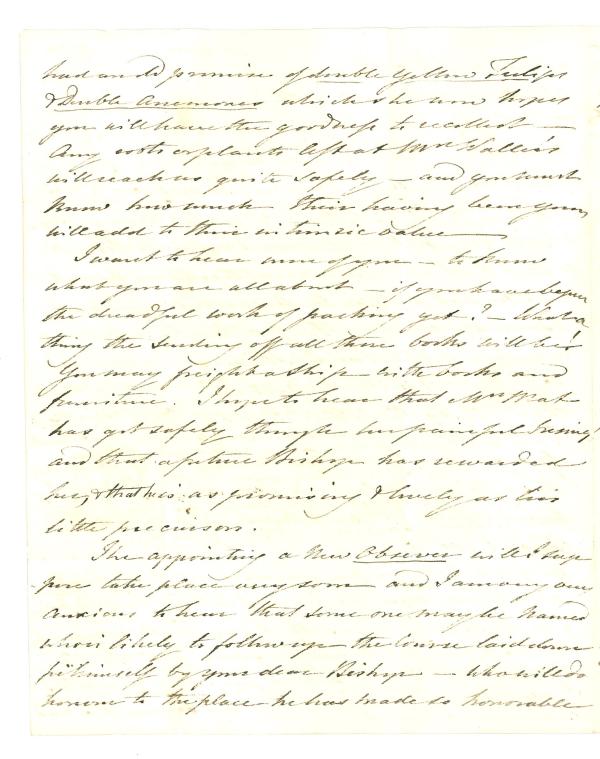 had an old promise of double yellow Tulips
& Double Anemones which she now hopes
you will have the goodness to recollect —
Any roots or plants left at Mrs Wallis's
will reach us quite safely — and you must
know how much their having been yours
will add to their intrinsic value —
I want to hear more of you — to know
what you are all about — if you have begun
the dreadful work of packing yet? — What a
thing the sending off all those books will be!
You may freight a ship with books and
furniture. I hope to hear that Mrs
has got safely through her painful
and that a future Bishop has rewarded
her, & that he is as promising & lively as his
little precursors.
The appointing a New Observer will I sup
-pose take place very soon and I am very very
anxious to hear that some one may be named
who is likely to follow up the Course laid down
for himself by your dear Bishop — who will do
honour to the place he has made so honorable